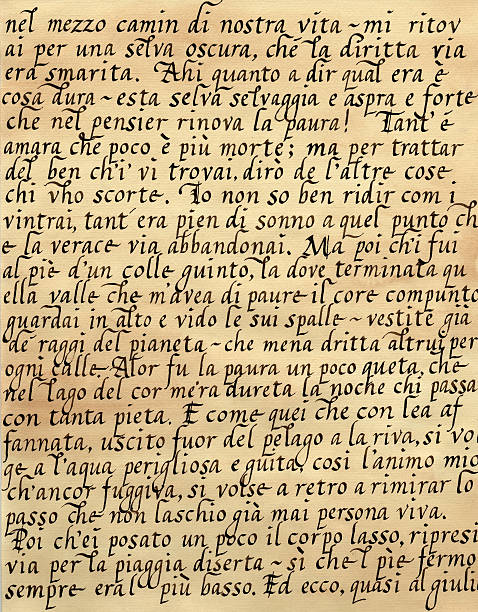 nel mezzo camin di nostra vita ~ mi ritov
ai per una selva oscura, che la diritta via
era smarita. Ahi quanto a dir qual era è
cosa dura ~ esta selva selvaggia e aspra e forte
che nel pensier rinova la paura! Tant' é
amara che poco è più morte; ma per trattar
del ben ch'i' vi trovai, dirò de l'altre cose
chi v'ho scorte. Io non so ben ridir com i
vintrai, tant' era pien di sonno a quel punto ch
e la verace via abbandonai. Ma poi ch'i fui
al piè d'un colle guinto, la dove terminata qu
ella valle che m'avea di paure il core compunto
guardai in alto e vido le sui spalle ~ vestite già
de raggi del pianeta ~ che mena dritta altrui per
ogni calle. Alor fu la paura un poco queta, che
nel lago del cor m'era dureta la noche chi passa
con tanta pieta. E come quei che con lea af
fannata, uscito fuor del pelago a la riva, si vol
ge a l'aqua perigliosa e guita, cosi l'animo mio
ch'ancor fuggiva, si volse a retro a rimirar lo
passo che non laschio già mai persona viva.
Poi ch'ei posato un poco il corpo lasso, ripresi
via per la piaggia diserta ~ sì che l piè fermo
sempre era l più basso. Ed ecco, quasi al giuli